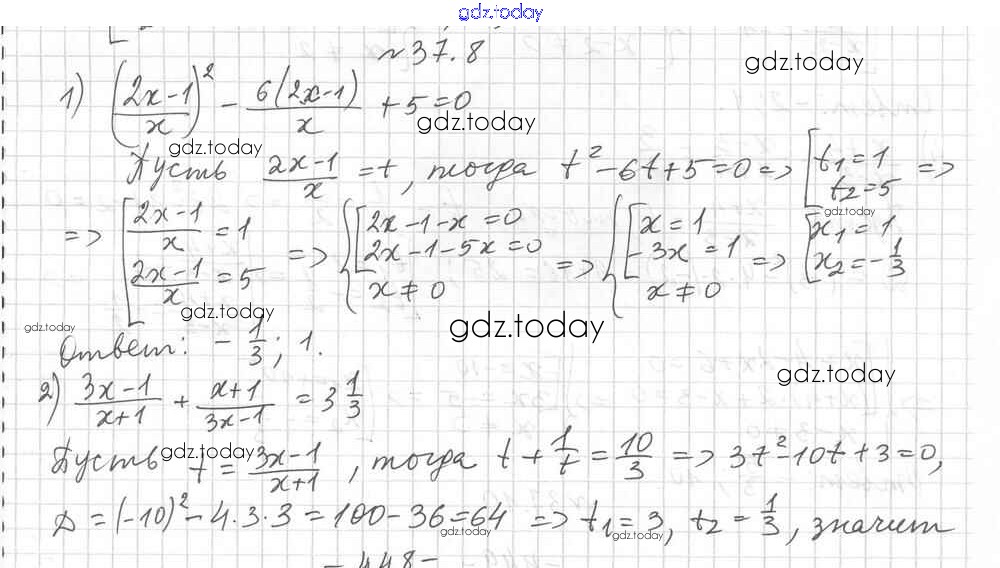 gdz.today
№37.8
gdz.today
1) ((2x-1)/x)² - 6(2x-1)/x + 5 = 0
gdz.today
gdz.today
Пусть (2x-1)/x = t, тогда t² - 6t + 5 = 0 => [t₁ = 1 t₂ = 5 =>
gdz.today
=> [(2x-1)/x = 1 (2x-1)/x = 5 => {[2x-1-x = 0 2x-1-5x = 0 x ≠ 0 => {[x = 1 -3x = 1 x ≠ 0 => [x₁ = 1 x₂ = -1/3
gdz.today
gdz.today
gdz.today
gdz.today
Ответ: -1/3; 1.
gdz.today
2) (3x-1)/(x+1) + (x+1)/(3x-1) = 3 1/3
gdz.today
Пусть t = (3x-1)/(x+1), тогда t + 1/t = 10/3 => 3t² - 10t + 3 = 0,
gdz.today
D = (-10)² - 4·3·3 = 100 - 36 = 64 => t₁ = 3, t₂ = 1/3, значит
gdz.today
gdz.today
- 448 -